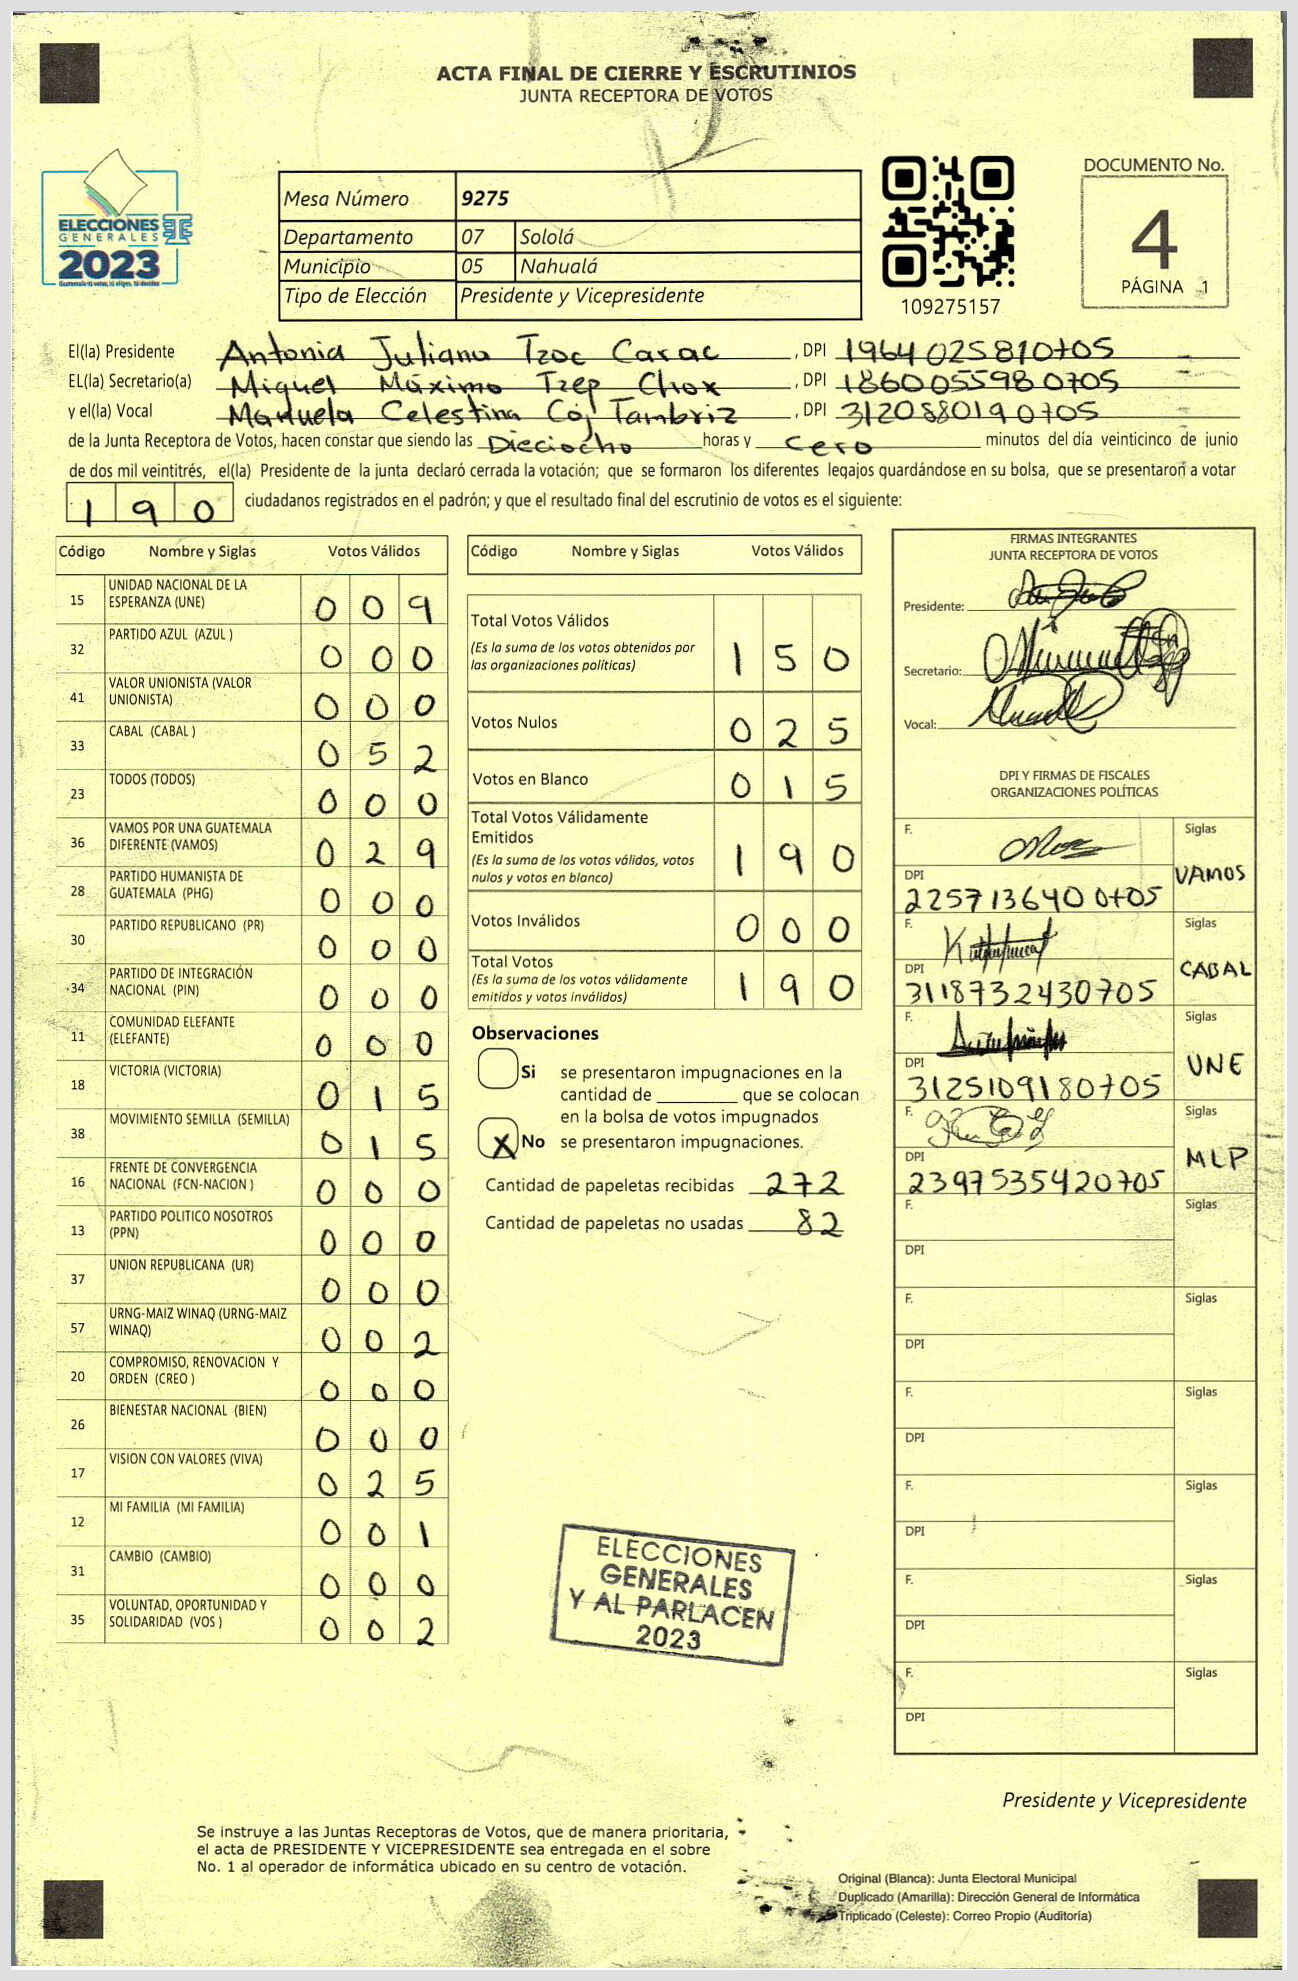 ACTA FINAL DE CIERRE Y ESCRUTINIOS
JUNTA RECEPTORA DE VOTOS
ELECCIONES
GENERALES
2023
Mesa Número 9275
Departamento 07 Sololá
Municipio 05 Nahualá
Tipo de Elección Presidente y Vicepresidente
109275157
DOCUMENTO No.
4
PÁGINA 1
El(la) Presidente Antonia Juliana Tzoc Carac, DPI 1964025810705
EL(la) Secretario(a) Miguel Máximo Tzep Chox, DPI 1860055980705
y el(la) Vocal Manuela Celestina Cój Tambriz, DPI 3120880190705
de la Junta Receptora de Votos, hacen constar que siendo las Dieciocho horas y cero minutos del día veinticinco de junio
de dos mil veintitrés, el(la) Presidente de la junta declaró cerrada la votación; que se formaron los diferentes legajos guardándose en su bolsa, que se presentaron a votar
190 ciudadanos registrados en el padrón; y que el resultado final del escrutinio de votos es el siguiente:
Código Nombre y Siglas Votos Válidos
15 UNIDAD NACIONAL DE LA
ESPERANZA (UNE) 009
32 PARTIDO AZUL (AZUL ) 000
41 VALOR UNIONISTA (VALOR
UNIONISTA) 000
33 CABAL (CABAL ) 052
23 TODOS (TODOS) 000
36 VAMOS POR UNA GUATEMALA
DIFERENTE (VAMOS) 029
28 PARTIDO HUMANISTA DE
GUATEMALA (PHG) 000
30 PARTIDO REPUBLICANO (PR) 000
34 PARTIDO DE INTEGRACIÓN
NACIONAL (PIN) 000
11 COMUNIDAD ELEFANTE
(ELEFANTE) 000
18 VICTORIA (VICTORIA) 015
38 MOVIMIENTO SEMILLA (SEMILLA) 015
16 FRENTE DE CONVERGENCIA
NACIONAL (FCN-NACION ) 000
13 PARTIDO POLITICO NOSOTROS
(PPN) 000
37 UNION REPUBLICANA (UR) 000
57 URNG-MAIZ WINAQ (URNG-MAIZ
WINAQ) 002
20 COMPROMISO, RENOVACION Y
ORDEN (CREO ) 000
26 BIENESTAR NACIONAL (BIEN) 000
17 VISION CON VALORES (VIVA) 025
12 MI FAMILIA (MI FAMILIA) 001
31 CAMBIO (CAMBIO) 000
35 VOLUNTAD, OPORTUNIDAD Y
SOLIDARIDAD (VOS ) 002
Código Nombre y Siglas Votos Válidos
Total Votos Válidos
(Es la suma de los votos obtenidos por
las organizaciones políticas) 150
Votos Nulos 025
Votos en Blanco 015
Total Votos Válidamente
Emitidos
(Es la suma de los votos válidos, votos
nulos y votos en blanco) 190
Votos Inválidos 000
Total Votos
(Es la suma de los votos válidamente
emitidos y votos inválidos) 190
Observaciones
Si se presentaron impugnaciones en la
cantidad de ________ que se colocan
en la bolsa de votos impugnados
X No se presentaron impugnaciones.
Cantidad de papeletas recibidas 272
Cantidad de papeletas no usadas 82
ELECCIONES
GENERALES
Y AL PARLACEN
2023
FIRMAS INTEGRANTES
JUNTA RECEPTORA DE VOTOS
Presidente:
Secretario:
Vocal:
DPI Y FIRMAS DE FISCALES
ORGANIZACIONES POLÍTICAS
F. Siglas
VAMOS
DPI
2257136400705
F. Siglas
CABAL
DPI
3118732430705
F. Siglas
UNE
DPI
3125109180705
F. Siglas
MLP
DPI
2397535420705
F. Siglas
DPI
F. Siglas
DPI
F. Siglas
DPI
F. Siglas
DPI
F. Siglas
DPI
F. Siglas
DPI
Presidente y Vicepresidente
Se instruye a las Juntas Receptoras de Votos, que de manera prioritaria,
el acta de PRESIDENTE Y VICEPRESIDENTE sea entregada en el sobre
No. 1 al operador de informática ubicado en su centro de votación.
Original (Blanca): Junta Electoral Municipal
Duplicado (Amarilla): Dirección General de Informática
Triplicado (Celeste): Correo Propio (Auditoría)